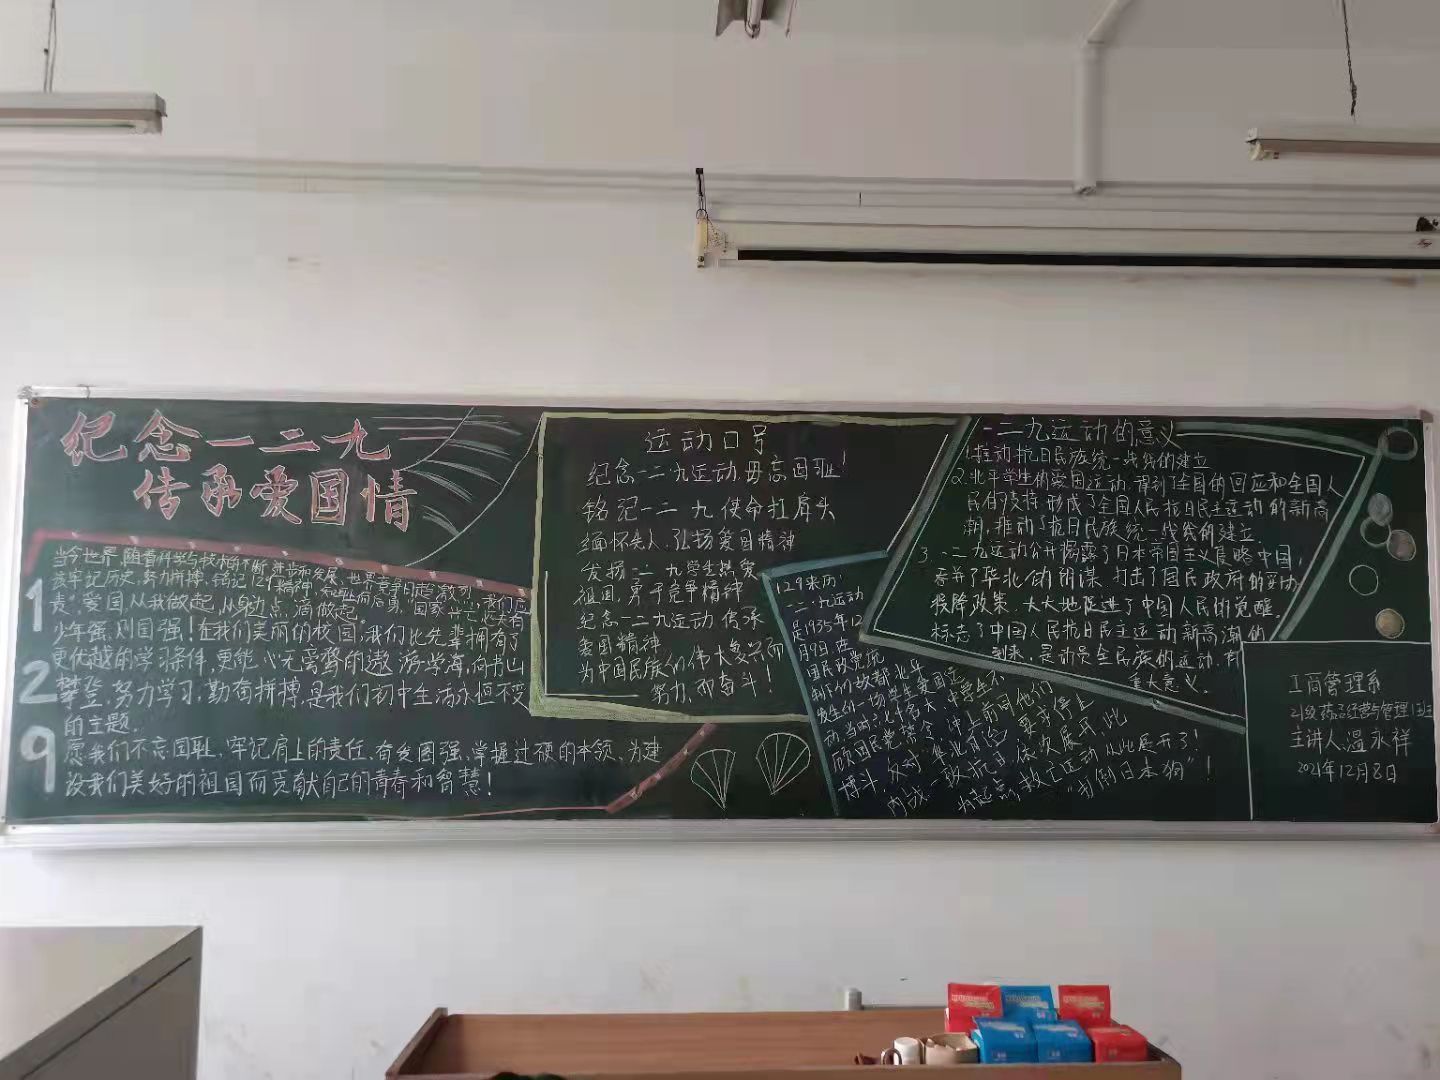 纪念一二九
传承爱国情
129
当今世界,随着科学与技术的不断进步和发展,世界竞争日趋激烈,我们应
该牢记历史,努力拼搏,铭记129精神,知耻而后勇,"国家兴亡,匹夫有
责",爱国从我做起,从身边点滴做起。
少年强,则国强!在我们美丽的校园,我们比先辈拥有了
更优越的学习条件,更能心无旁骛的遨游学海,向书山
攀登,努力学习,勤奋拼搏,是我们初中生活永恒不变
的主题.
愿我们不忘国耻,牢记肩上的责任,奋发图强,掌握过硬的本领,为建
设我们美好的祖国而贡献自己的青春和智慧!
运动口号
纪念一二九运动毋忘国耻!
铭记一二九使命扛肩头
缅怀先人,弘扬爱国精神
发扬一二九学生热爱
祖国,勇于竞争精神
纪念一二九运动 传承
爱国精神
为中国民族们伟大复兴而
努力,而奋斗!
129来历:
一二九运动
是1935年12
月9日,在
国民政党统
制下的故都北平
发生的一场学生爱国运
动.当时六七千名大中学生不
顾国民党禁令,冲上前同他们
博斗,反对"华北自治",要求停止
内战,一致抗日,依次展开.此
次起点,救亡运动从此展开了!
"打倒日本狗"!
一二九运动的意义
1.推动抗日民族统一战线的建立
2.北平学生的爱国运动,得到了全国的回应和全国人
民的支持,形成了全国人民抗日民主运动的新高
潮,推动了抗日民族统一战线的建立.
3.一二九运动公开揭露了日本帝国主义侵略中国,
吞并了华北的阴谋,打击了国民政府的妥协
投降政策,大大地促进了中国人民的觉醒.
标志了中国人民抗日民主运动新高潮的
到来,是动员全民族的运动,有
重大意义.
工商管理系
21级药品经营与管理1班
主讲人:温永祥
2021年12月8日